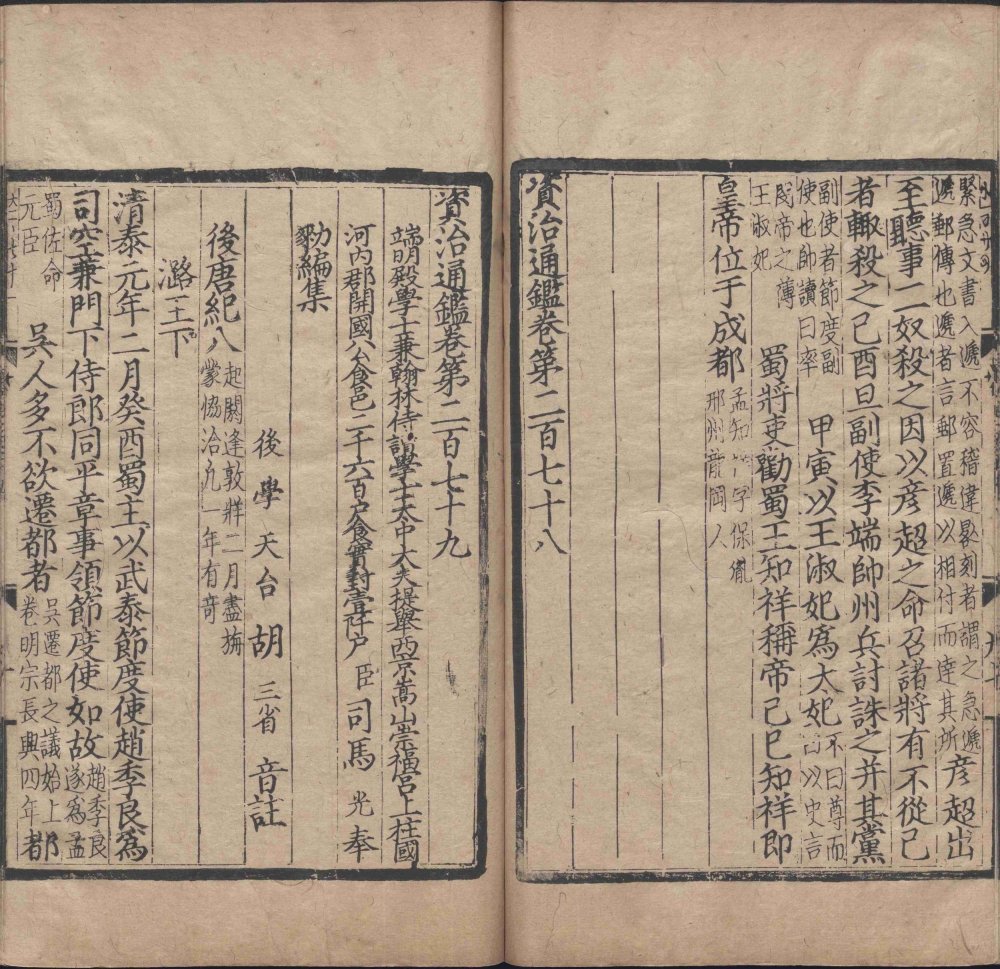 緊急文書入遞不容稽違晷刻者謂之急遞
遞郵傳也遞者言郵置遞以相付而達其所
彥超出
至聽事二奴殺之因以彥超之命召諸將有不從己
者輒殺之己酉旦副使李端帥州兵討誅之并其黨
副使者節度副
使也帥讀曰率
甲寅以王淑妃爲太妃
不曰尊而
曰以史言
閔帝之薄
王淑妃
蜀將吏勸蜀王知祥稱帝己巳知祥即
皇帝位于成都
孟知祥字保胤
邢州龍岡人
資治通鑑卷第二百七十八
資治通鑑卷第二百七十九
端明殿學士兼翰林侍讀學士太中大夫提舉西京嵩山崇福宮上柱國
河內郡開國公食邑二千六百戶食實封壹阡戶臣司馬光奉
勑編集
後學天台胡三省音註
後唐紀八
起閼逢敦牂二月盡旃
蒙協洽凡一年有奇
潞王下
清泰元年二月癸酉蜀主以武泰節度使趙季良爲
司空兼門下侍郎同平章事領節度使如故
趙季良
遂爲孟
蜀佐命
元臣
吳人多不欲遷都者
吳遷都之議始上
卷明宗長興四年
都